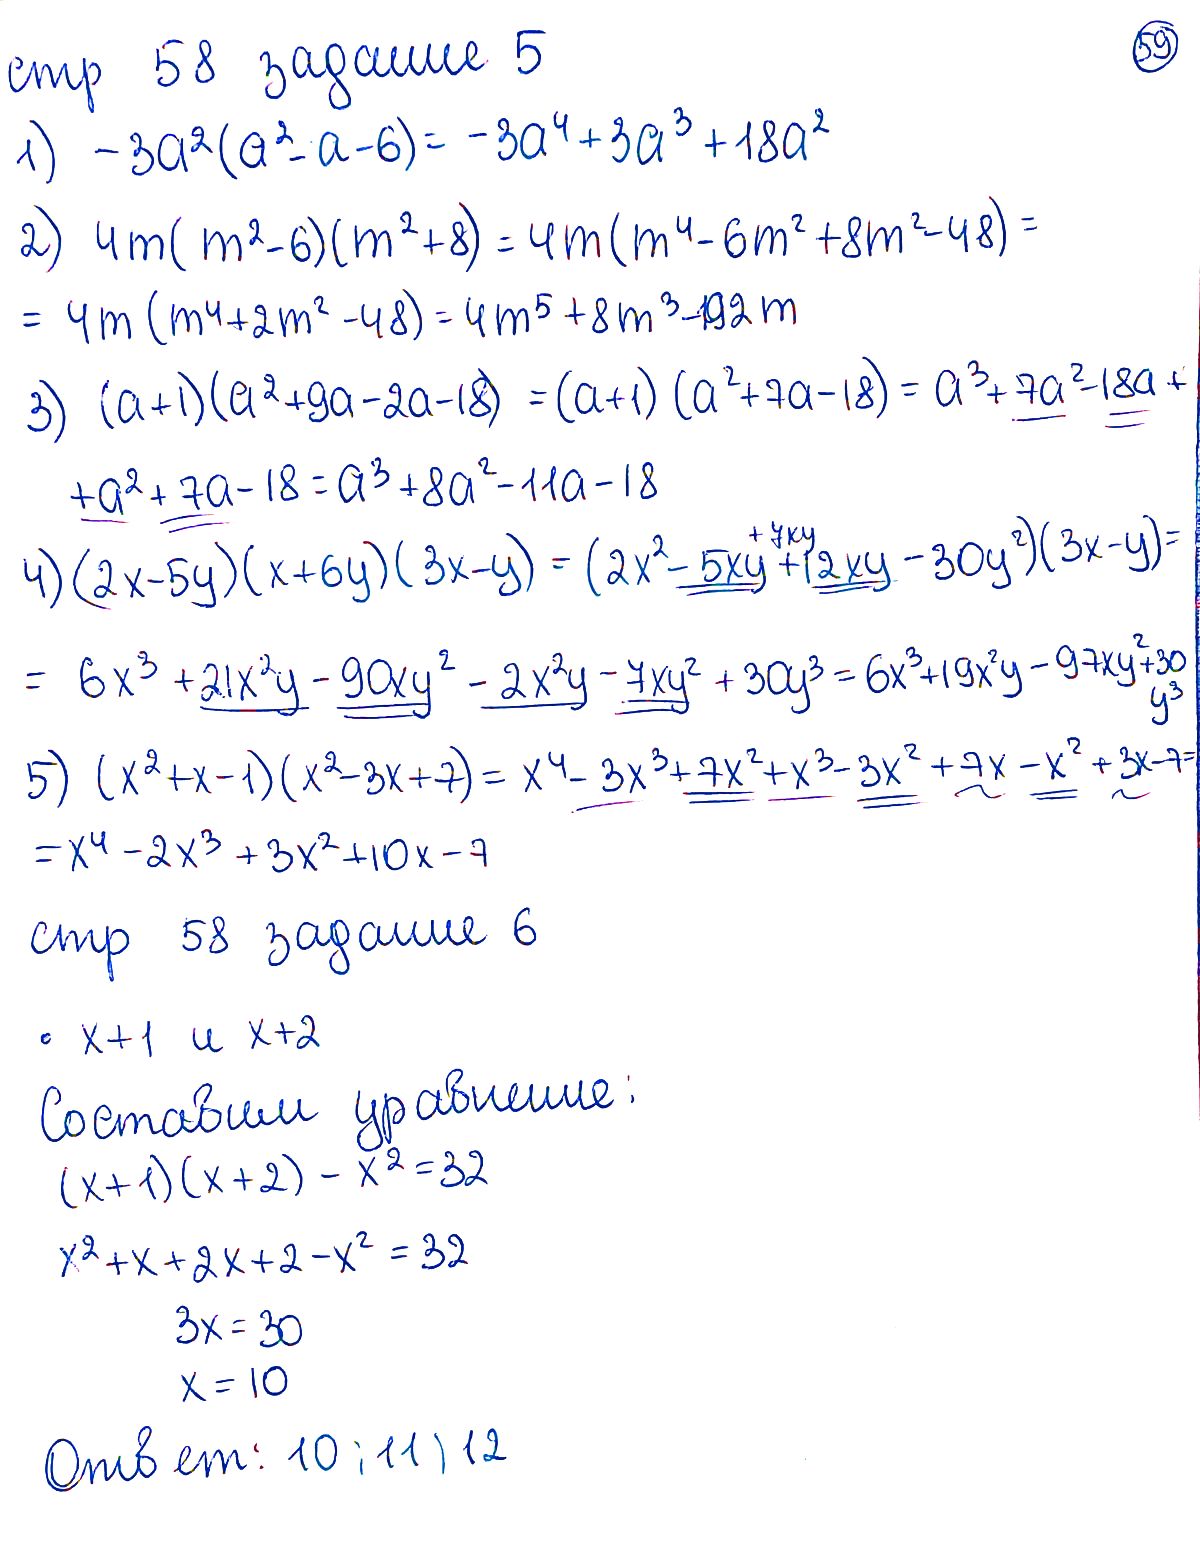 59
стр 58 задание 5
1) -3a²(a²-a-6)= -3a⁴+3a³+18a²
2) 4m(m²-6)(m²+8)=4m(m⁴-6m²+8m²-48)=
=4m(m⁴+2m²-48)=4m⁵+8m³-192m
3) (a+1)(a²+9a-2a-18) =(a+1)(a²+7a-18)=a³+7a²-18a+
+a²+7a-18=a³+8a²-11a-18
+7xy
4)(2x-5y)(x+6y)(3x-y)=(2x²-5xy+12xy-30y²)(3x-y)=
= 6x³+21x²y-90xy²-2x²y-7xy²+30y³=6x³+19x²y-97xy²+30
y³
5) (x²+x-1)(x²-3x+7)=x⁴-3x³+7x²+x³-3x²+7x-x²+3x-7=
=x⁴-2x³+3x²+10x-7
стр 58 задание 6
• x+1 и x+2
Составим уравнение:
(x+1)(x+2)-x²=32
x²+x+2x+2-x²=32
3x=30
x=10
Ответ: 10;11;12